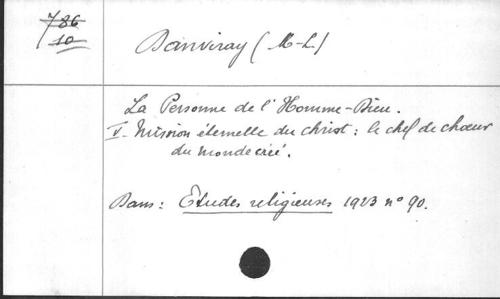 786
10
Banviray (M-L)
La Personne de l'Homme-Dieu.
V- Mission éternelle du Christ : le chef de chœur
du monde créé.
Dans : Etudes religieuses 1923 n° 90.